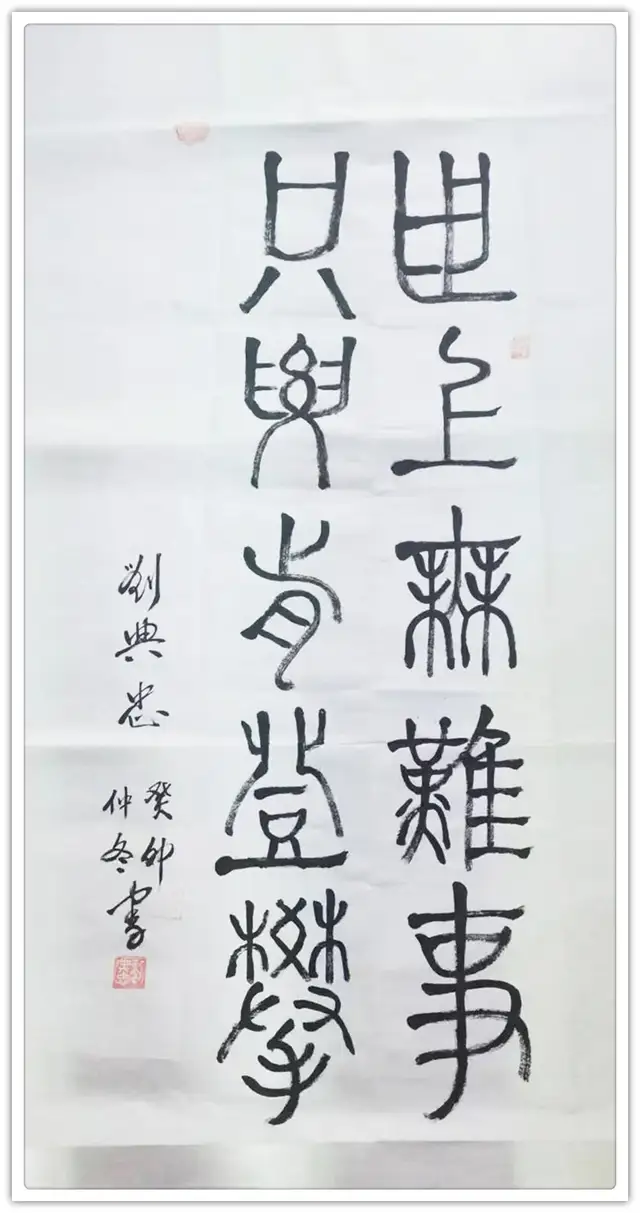 世上無難事
只要肯登攀
劉典忠
癸卯
仲冬書